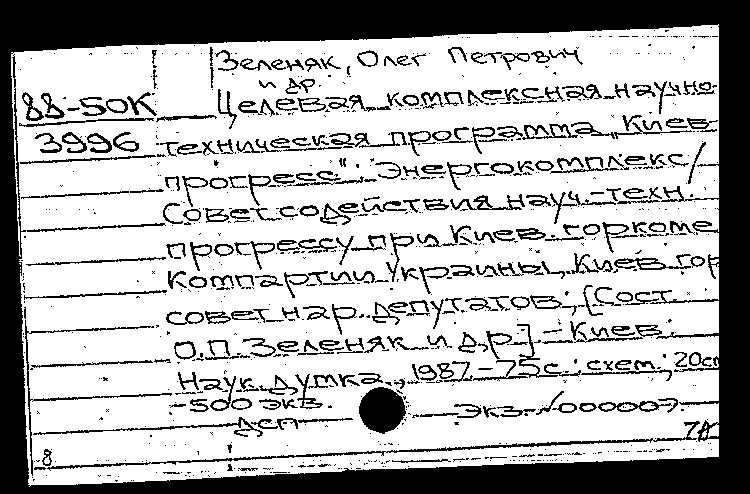 Зеленяк, Олег Петрович
и др.
88-50К Целевая комплексная научно-
3996 техническая программа „Киев-
прогресс“: Энергокомплекс /
Совет содействия науч.-техн.
прогрессу при Киев. горкоме
Компартии Украины, Киев. гор.
совет нар. депутатов; [Сост.
О.П. Зеленяк и др.] - Киев:
Наук. думка, 1987. - 75с.: схем.; 20см
-500 экз.
ДСП Экз. №000007.
8